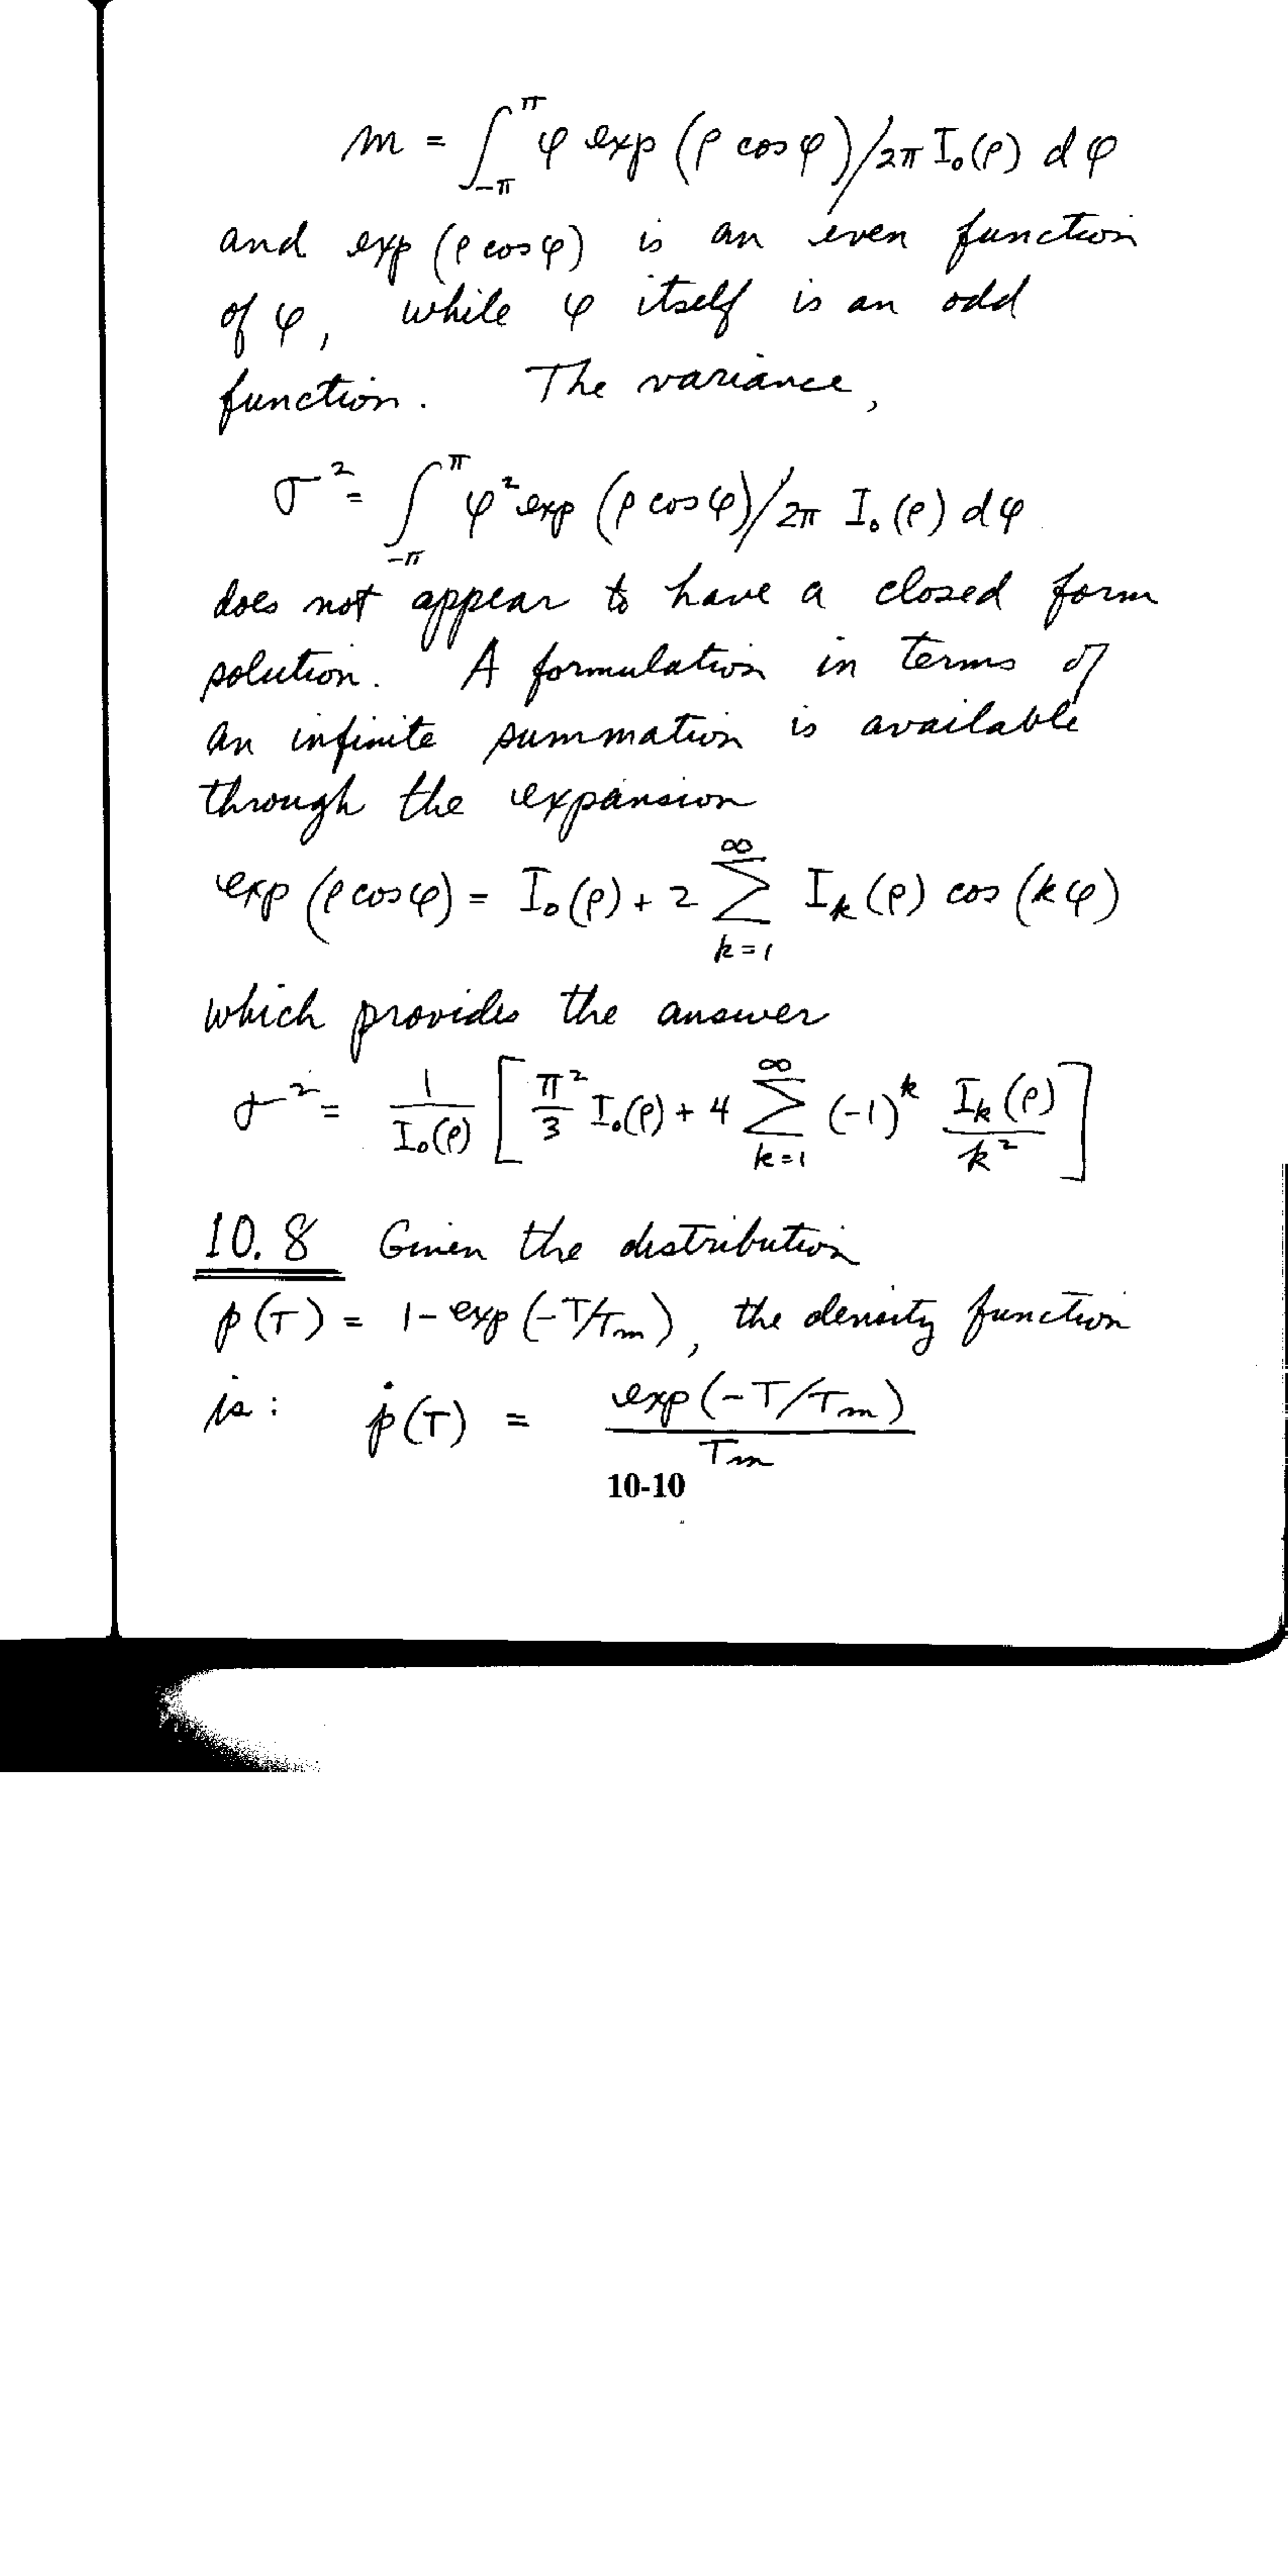 m = ∫_{-π}^{π} φ exp (ρ cos φ)/2π I₀(ρ) dφ
and exp (ρ cos φ) is an even function
of φ, while φ itself is an odd
function. The variance,
σ² = ∫_{-π}^{π} φ² exp (ρ cos φ)/2π I₀(ρ) dφ
does not appear to have a closed form
solution. A formulation in terms of
an infinite summation is available
through the expansion
exp (ρ cos φ) = I₀(ρ) + 2 ∑_{k=1}^{∞} I_k(ρ) cos (kφ)
which provides the answer
σ² = 1/I₀(ρ) [ π²/3 I₀(ρ) + 4 ∑_{k=1}^{∞} (-1)^k I_k(ρ)/k² ]
10.8 Given the distribution
p(T) = 1 - exp (-T/T_m), the density function
is: ṗ(T) = exp(-T/T_m)/T_m
10-10